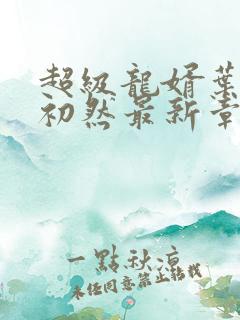 超級龍婿葉
初然最新章
一點秋涼
未經同意禁止轉載